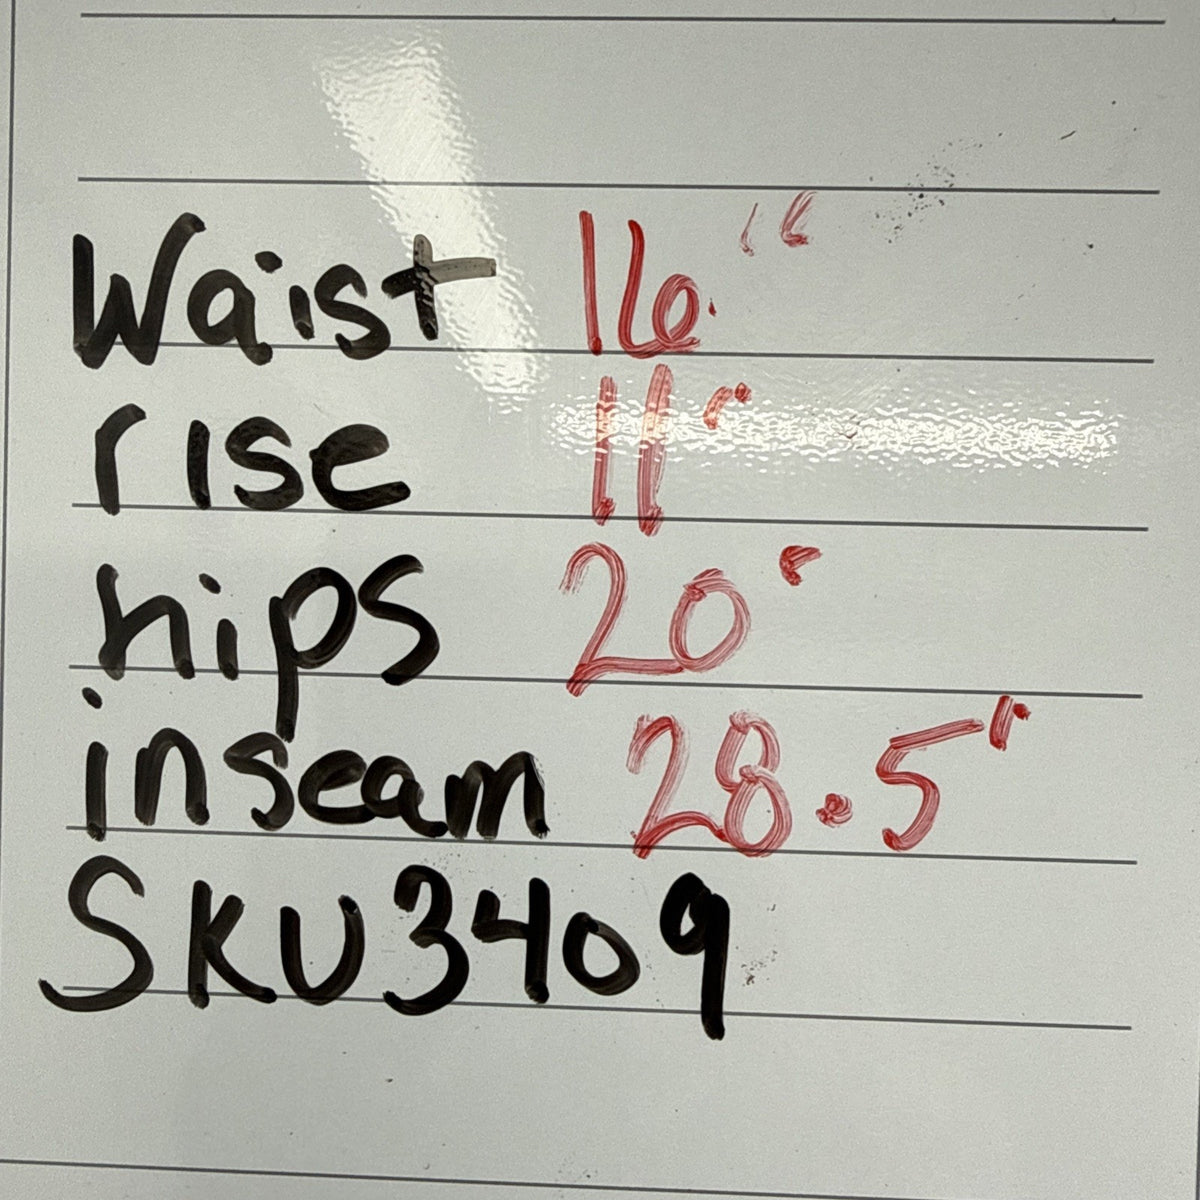 Waist 16"
rise 11"
hips 20"
inseam 28.5"
SKU3409